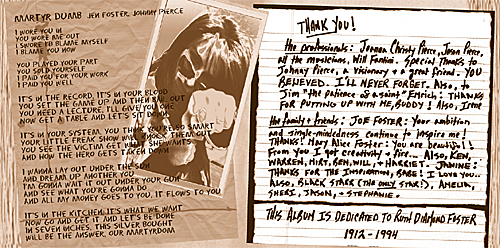 MARTYR DUMB JEN FOSTER, JOHNNY PIERCE
I WORE YOU IN
YOU WORE ME OUT
I SWORE TO BLAME MYSELF
I BLAME YOU NOW
YOU PLAYED YOUR PART
YOU SOLD YOURSELF
I PAID YOU FOR YOUR WORK
I PAID YOU WELL
IT'S IN THE RECORD, IT'S IN YOUR BLOOD
YOU SET THE GAME UP AND THEN BAIL OUT
YOU NEED A LECTURE, I'LL GIVE YOU ONE
NOW GET A TABLE AND LET'S SIT DOWN
IT'S IN YOUR SYSTEM, YOU THINK YOU'RE SO SMART
YOUR LITTLE FREAK SHOW WILL KNOCK THEM OUT
YOU SEE THE VICTIM GET WHAT SHE WANTS
AND HOW THE HERO GETS TAKEN DOWN
I WANNA LAY OUT UNDER THE SUN
AND DREAM UP ANOTHER YOU
I'M GONNA WAIT IT OUT UNDER YOUR GUN
AND SEE WHAT YOU'RE GONNA DO
AND ALL MY MONEY GOES TO YOU, IT FLOWS TO YOU
IT'S IN THE KITCHEN, IT'S WHAT WE WANT
NOW GO AND GET IT AND LET'S BE DONE
IN SEVEN INCHES, THIS SILVER BOUGHT
WILL BE THE ANSWER, OUR MARTYRDOM
THANK YOU!
the professionals: Christy Pierce, Jason Pierce,
all the musicians, Will Fontini. Special thanks to
Johnny Pierce, a visionary & a great friend. YOU
BELIEVED. I'LL NEVER FORGET. Also, to
Jim "the patience of a saint" Ettrich: THANKS
FOR PUTTING UP WITH ME, BUDDY! Also, Irene
the family & friends: JOE FOSTER: your ambition
and single-mindedness continue to inspire me!
THANKS! Mary Alice Foster: you are beautiful!
From you, I got creativity & fire... ALSO, KEN,
WARREN, MIRY, BEN, WILL, & HARRIET. JEANNE:
THANKS FOR THE INSPIRATION, BABE! I LOVE YOU...
ALSO, BLACK STARR (THE ONLY STAR!), AMELIA,
SHERI, JASON, & STEPHANIE.
THIS ALBUM IS DEDICATED TO RUTH DIAMOND FOSTER
1912 - 1994